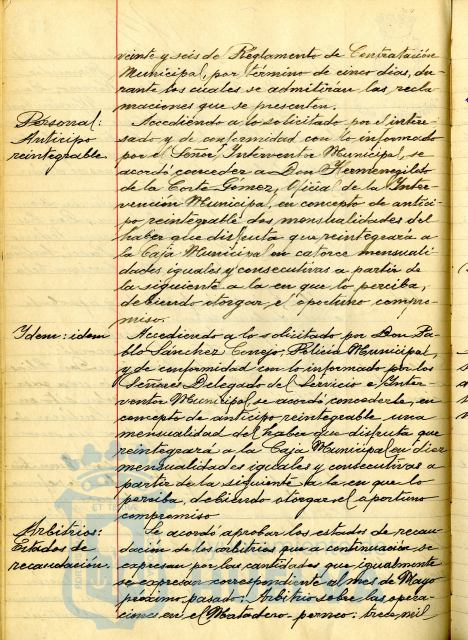 veinte y seis de Reglamento de Contratación
Municipal, por término de cinco dias, du-
rante los cuales se admitirán las recla
maciones que se presenten.
Personal:
Anticipo
reintegrable.
Accediéndo a lo solicitado por el intere-
sado y de conformidad con lo informado
por el Señor Interventor Municipal, se
acordó conceder a Don Hermenegildo
de la Corte Gomez, Oficial de la Inter-
vención Municipal, en concepto de antici-
po reintegrable dos mensualidades del
haber que disfruta que reintegrará a
la Caja Municipal en catorce mensuali-
dades iguales y consecutivas a partir de
la siguiente a la en que lo perciba,
debiendo otorgar el oportuno compro-
miso.
Idem: idem
Accediendo a lo solicitado por Don Pa-
blo Sánchez Conejo, Policia Municipal,
y de conformidad con lo informado por los
Señores Delegado del Servicio e Inter-
ventor Municipal se acordó concederle, en
concepto de anticipo reintegrable una
mensualidad del haber que disfruta que
reintegrará a la Caja Municipal en diez
mensualidades iguales y consecutivas a
partir de la siguiente a la en que lo
perciba, debiendo otorgar el oportuno
compromiso
Arbitrios:
Estados de
recaudación.
Se acordó aprobar los estados de recau-
dación de los arbitrios que a continuación se
expresan por las cantidades que igualmente
se expresan correspondiente al mes de Mayo
próximo pasado: Arbitrio sobre las opera-
ciones en el Matadero-porcuno: trece mil